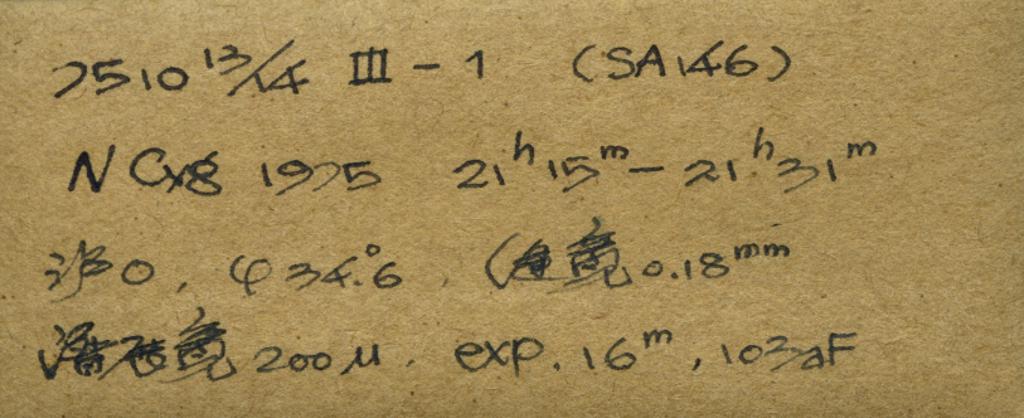 7510 13/14 III - 1 (SA146)
N Cyg 1975 21h 15m - 21h 31m
0, φ 34.°6, 0.18mm
200μ. exp. 16m, 103aF